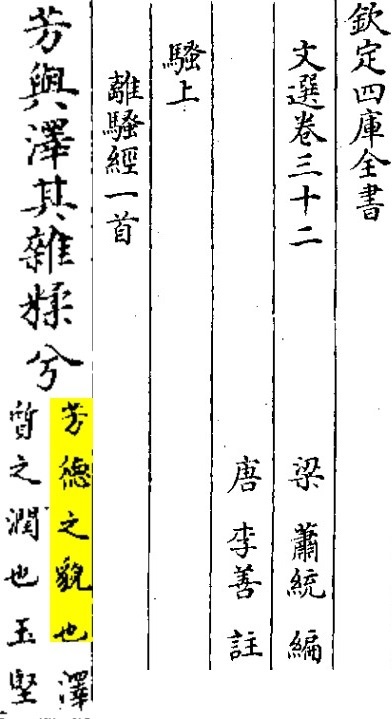 欽定四庫全書
文選卷三十二
梁 蕭統 編
唐 李善 註
騷上
離騷經一首
芳與澤其雜糅兮
芳德之貌也澤
質之潤也玉堅